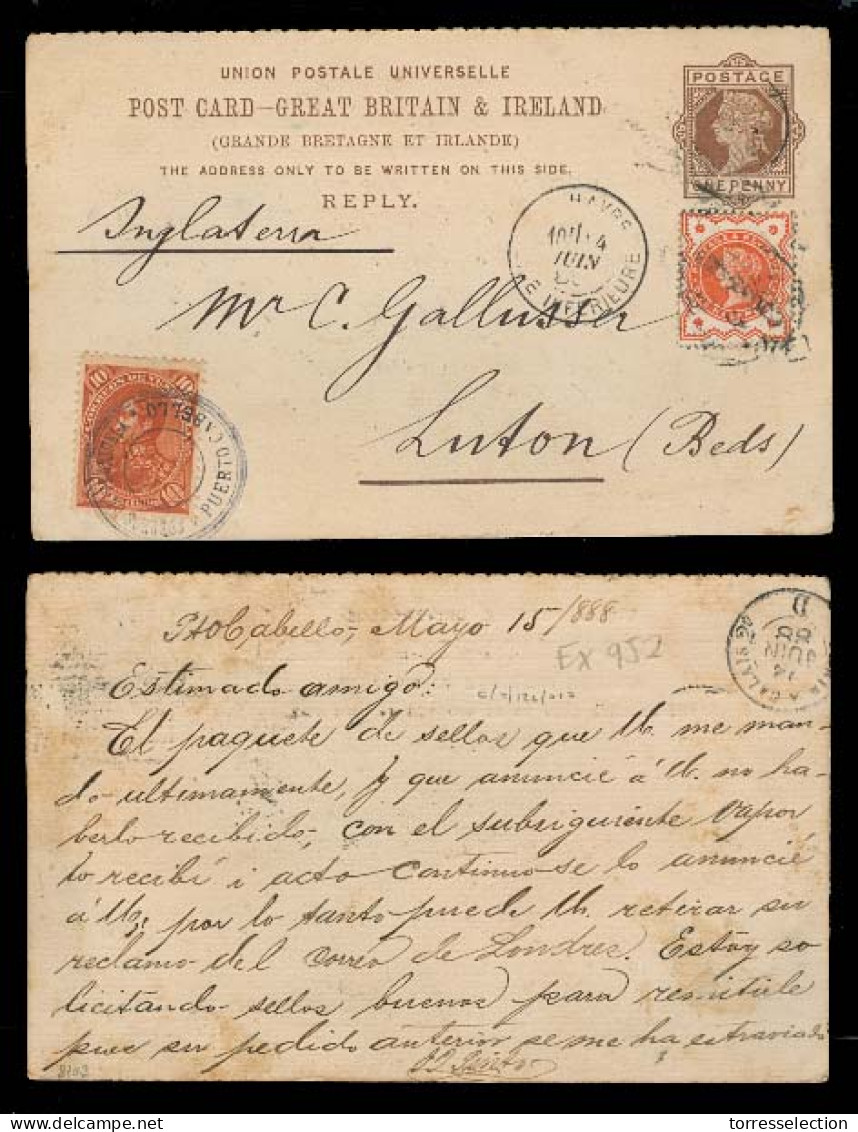 UNION POSTALE UNIVERSELLE
POST CARD-GREAT BRITAIN & IRELAND
(GRANDE BRETAGNE ET IRLANDE)
THE ADDRESS ONLY TO BE WRITTEN ON THIS SIDE.
REPLY.
POSTAGE
ONE PENNY
Inglaterra
HAVRE
JUIN
INFERIEURE
Mr C. Gallusser
Luton (Beds)
10 10
CORREOS DE
10
PUERTO CABELLO
PtoCabello, Mayo 15/888
Ex 952
D
88
JUIN
14
CALAIS
Estimado amigo:
El paquete de sellos que U. me man-
do ultimamente, y que anuncié á U. no ha-
berlo recibido, con el subsiguiente vapor
lo recibí i acto continuo se lo anuncié
á U; por lo tanto puede U. retirar su
reclamo del Correo de Londres. Estoy so
licitando sellos buenos para remitirle
pues su pedido anterior se me ha estraviado
8103
torresselection.com